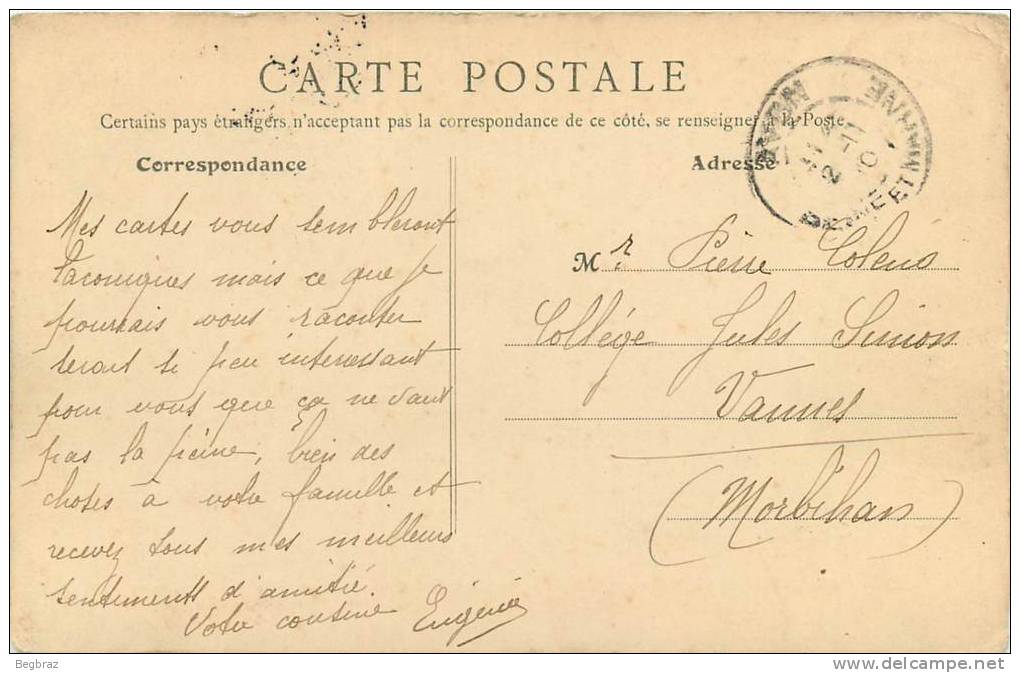 CARTE POSTALE
Certains pays étrangers n'acceptant pas la correspondance de ce côté, se renseigner à la Poste.
Correspondance
Mes cartes vous sembleront
laconiques mais ce que je
pourrais vous raconter
serait si peu intéressant
pour vous que ça ne vaut
pas la peine, bien des
choses à votre famille et
recevez tous mes meilleurs
sentiments d'amitié.
Votre cousine Eugénie
Adresse
Mr. Pierre
Collège Jules Simon
Vannes
(Morbihan)
AVON
SEINE ET MARNE
2 -11
10
Begbraz
http://www.delcampe.net